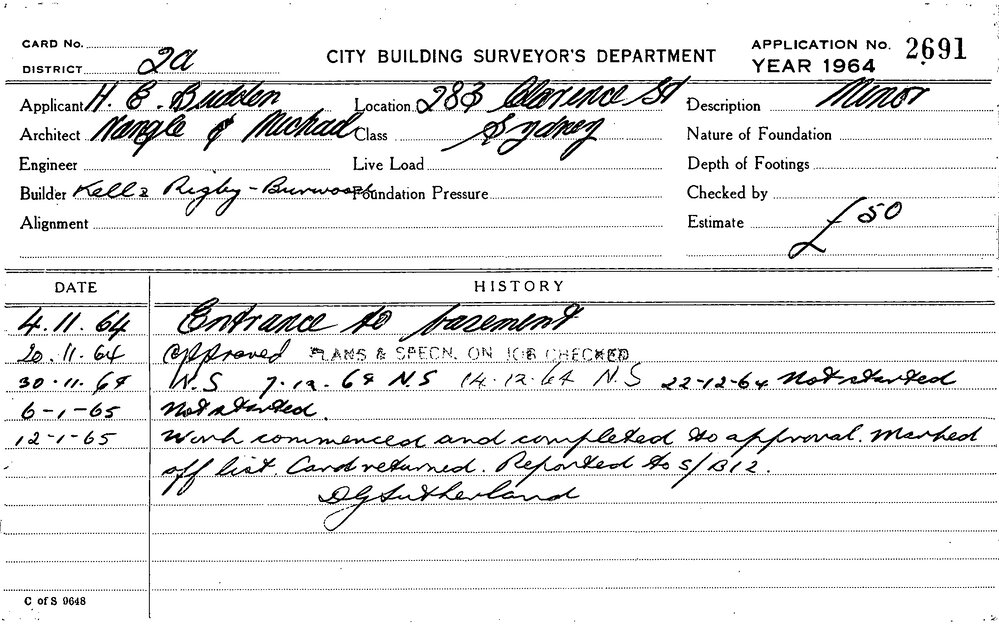 CARD No.
DISTRICT 2a
CITY BUILDING SURVEYOR'S DEPARTMENT
APPLICATION No. 2691
YEAR 1964
Applicant H. E. Budden Location 283 Clarence St Description Minor
Architect Nangle & Michael Class Sydney Nature of Foundation
Engineer Live Load Depth of Footings
Builder Kell & Rigby - Burwood Foundation Pressure Checked by
Alignment Estimate £50
DATE HISTORY
4.11.64 Entrance to basement
20.11.64 approved PLANS & SPECN. ON JOB CHECKED
30-11-64 N.S 7-12-64 N.S 14-12-64 N.S 22-12-64 Not started
6-1-65 Not started.
12-1-65 Work commenced and completed to approval. Marked
off list Card returned. Reported to S/B12.
DG Sutherland
C of S 9648